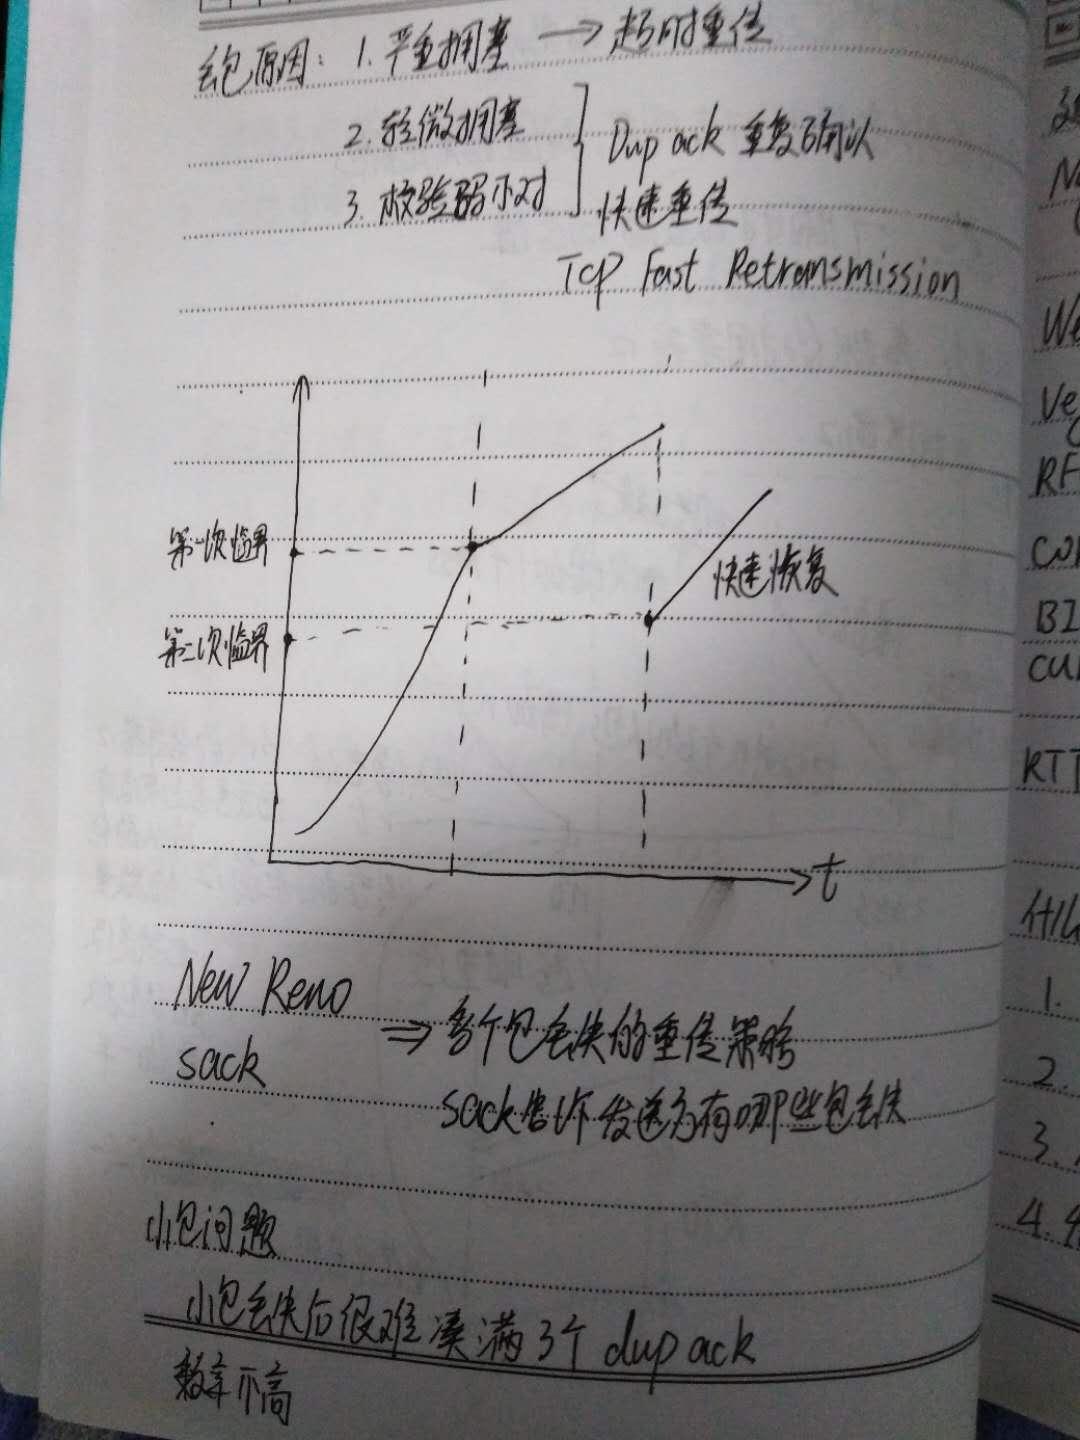 丢包原因: 1. 严重拥塞 → 超时重传
2. 轻微拥塞
3. 校验码不对
Dup ack 重复确认
快速重传
TCP Fast Retransmission
第一次临界
第二次临界
快速恢复
t
New Reno
sack
⇒ 多个包丢失的重传策略
sack告诉发送方有哪些包丢失
小包问题
小包丢失后很难凑满3个 dup ack
效率不高
Ve
RF
BI
RTT
1.
2.
3.
4.